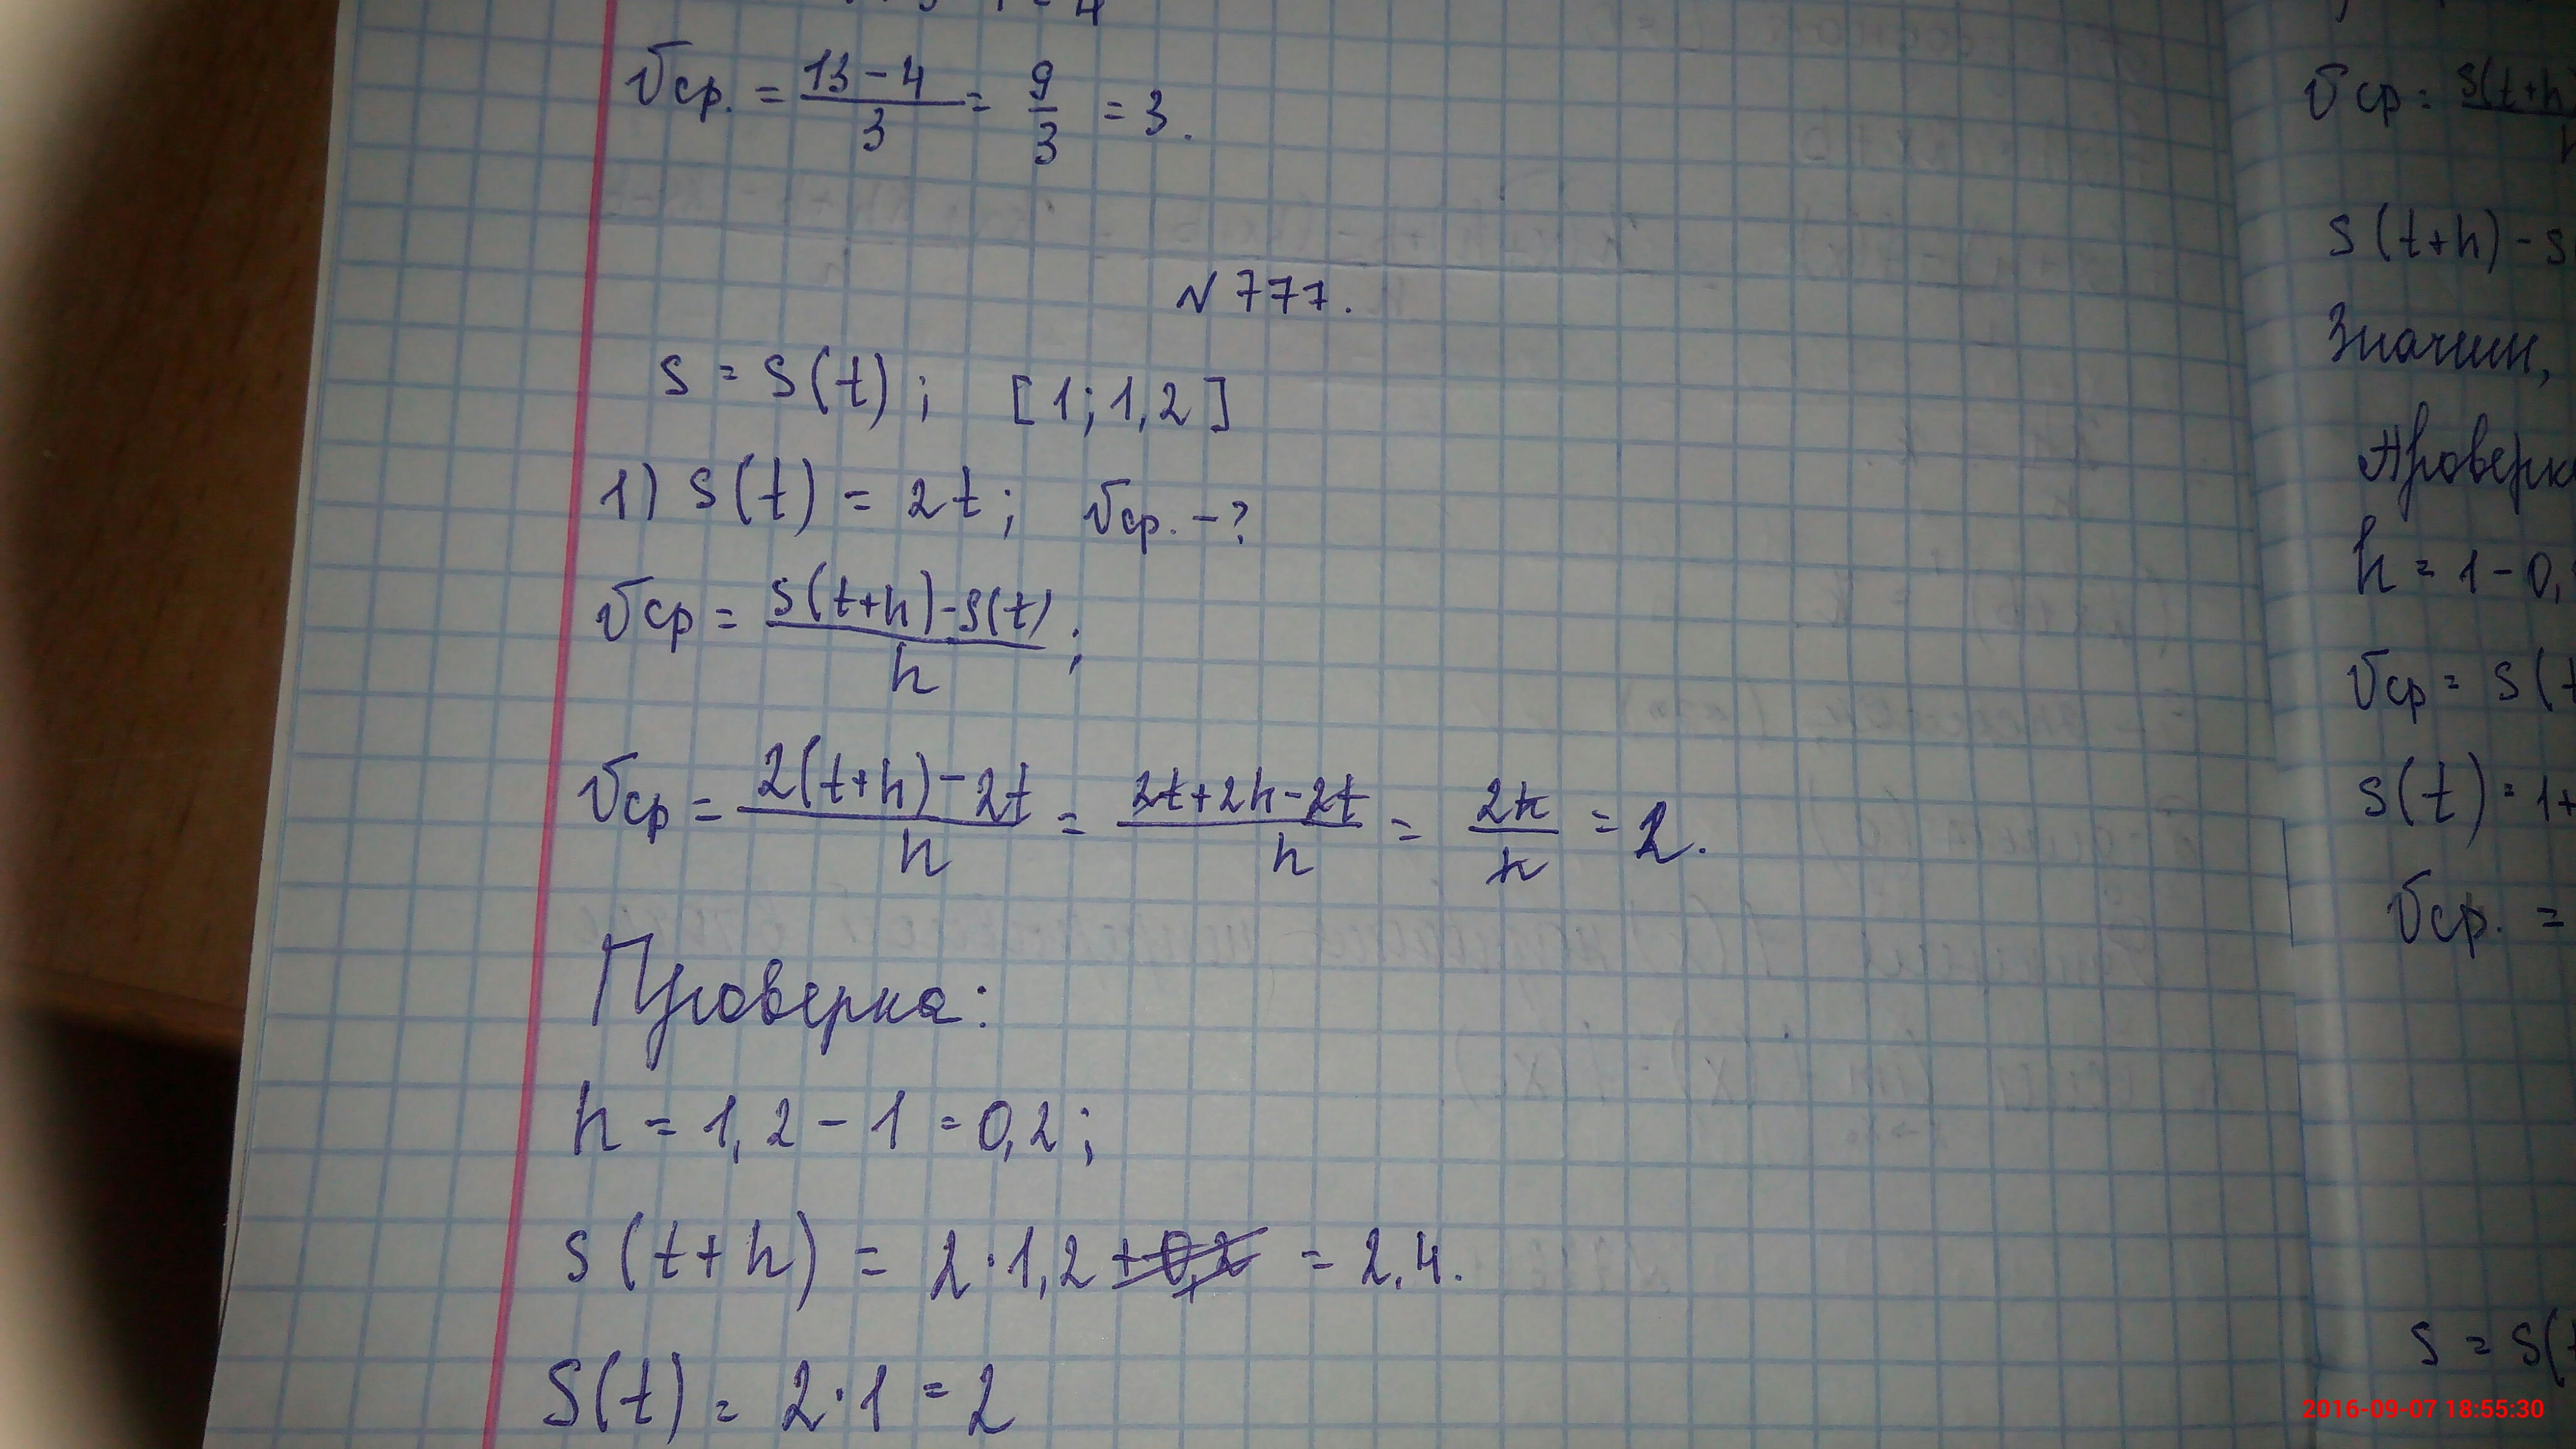 vср. = (13-4)/3 = 9/3 = 3.
N 777.
s = s(t); [1; 1,2]
1) s(t) = 2t; vср. - ?
vср = (s(t+h)-s(t))/h;
vср = (2(t+h)-2t)/h = (2t+2h-2t)/h = 2h/h = 2.
Проверка:
h = 1,2 - 1 = 0,2;
s(t+h) = 2·1,2 +0,2 = 2,4.
S(t) = 2·1 = 2
vср = s(t+h)
s(t+h) - s
Значит,
Проверка
h = 1 - 0,
vср = s(t
s(t) = 1+
vср. =
s = s(t
2016-09-07 18:55:30